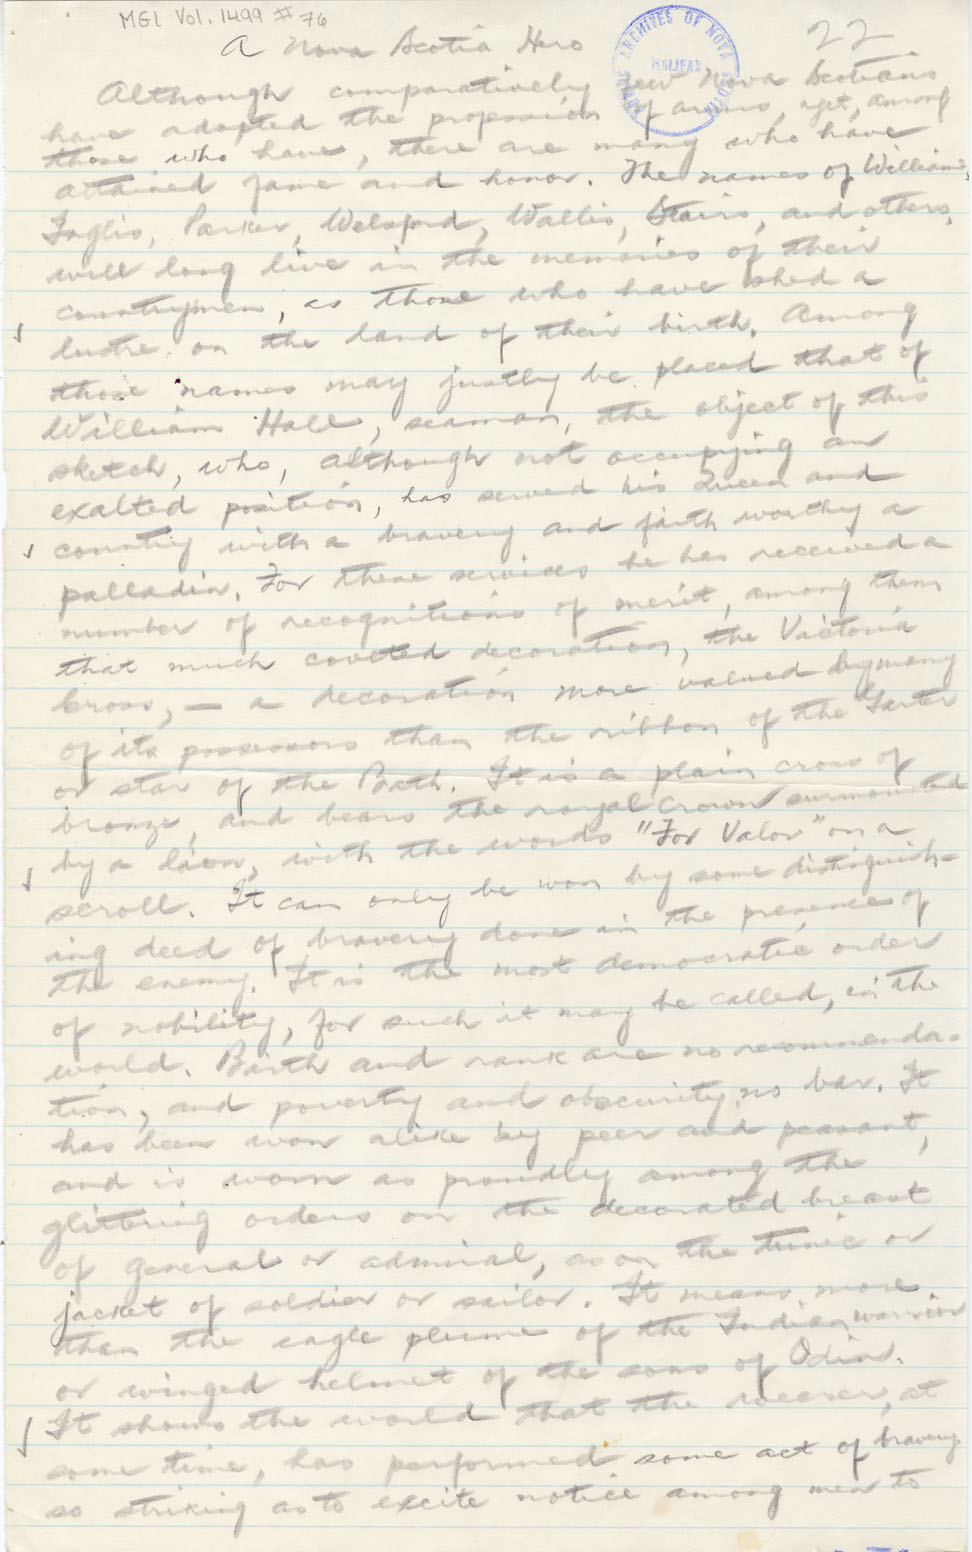 MG1 Vol. 1499 #76
22
A Nova Scotia Hero
PUBLIC ARCHIVES OF NOVA SCOTIA
HALIFAX
Although comparatively few Nova Scotians
have adopted the profession of arms, yet, among
those who have, there are many who have
attained fame and honor. The names of Williams,
Inglis, Parker, Welsford, Wallis, Stairs, and others,
will long live in the memories of their
countrymen, as those who have shed a
lustre on the land of their birth. Among
those names may justly be placed that of
William Hall, seaman, the object of this
sketch, who, although not occupying an
exalted position, has served his Queen and
country with a bravery and faith worthy a
palladin. For these services he has received a
number of recognitions of merit, among them
that much coveted decoration, the Victoria
Cross, — a decoration more valued by many
of its possessors than the ribbon of the Garter
or star of the Bath. It is a plain cross of
bronze, and bears the royal crown surmounted
by a lion, with the words "For Valor" on a
scroll. It can only be won by some distinguish-
ing deed of bravery done in the presence of
the enemy. It is the most democratic order
of nobility, for such it may be called, in the
world. Birth and rank are no recommenda-
tion, and poverty and obscurity no bar. It
has been won alike by peer and peasant,
and is worn as proudly among the
glittering orders on the decorated breast
of general or admiral, as on the tunic or
jacket of soldier or sailor. It means more
than the eagle plume of the Indian warrior
or winged helmet of the sons of Odin.
It shows the world that the wearer, at
some time, has performed some act of bravery
so striking as to excite notice among men to